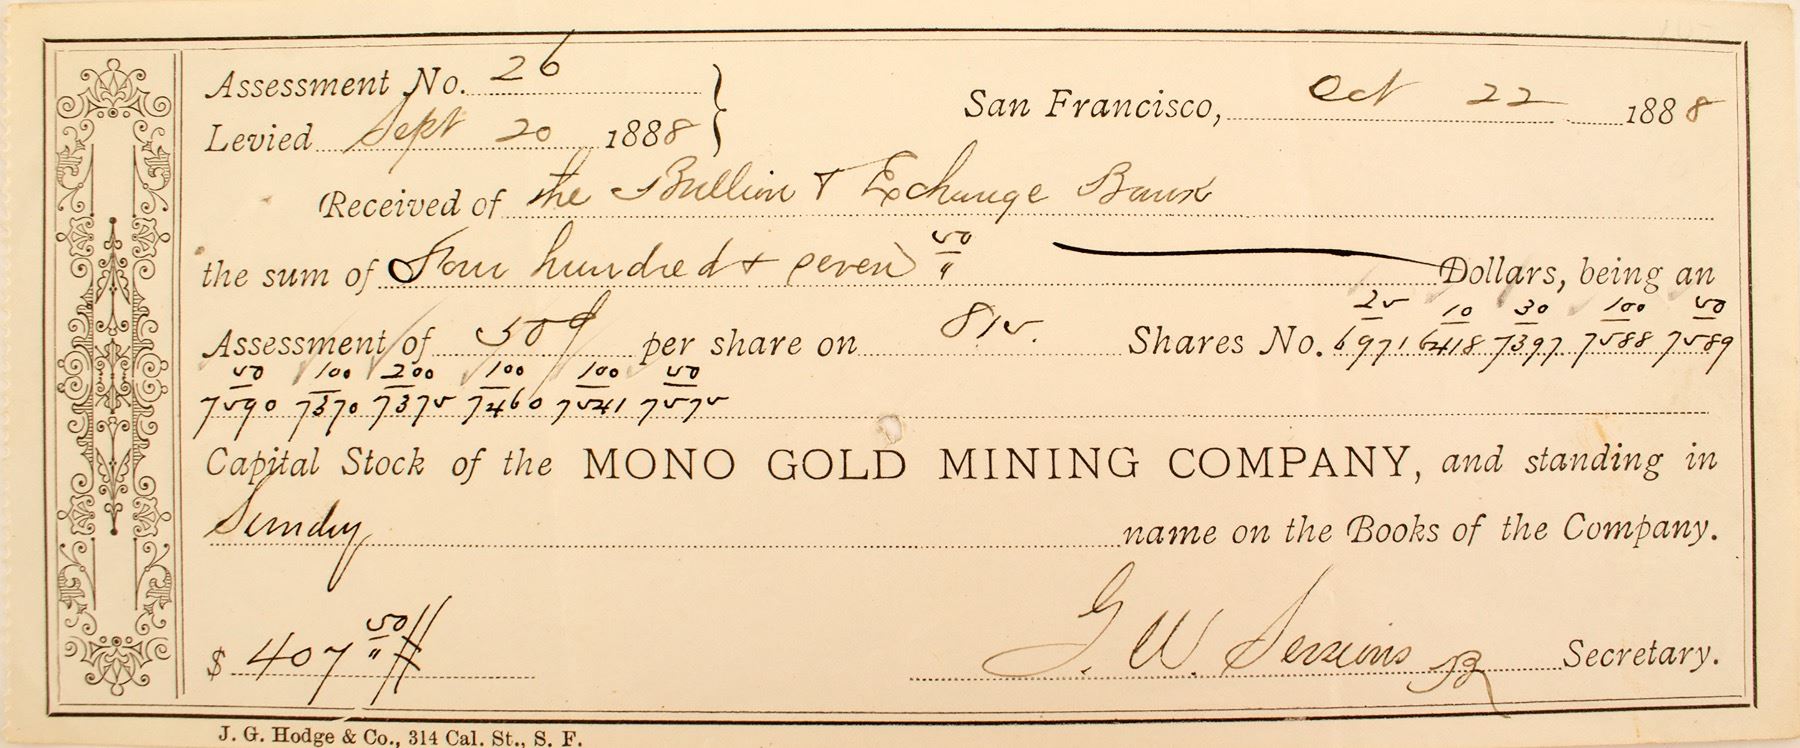 Assessment No. 26
Levied Sept 20 1888
San Francisco, Oct 22 1888
Received of the Bullion & Exchange Bank
the sum of Four hundred & seven 50/" Dollars, being an
Assessment of 50¢ per share on 815. Shares No. 25/6971 10/6418 30/7397 100/7588 50/7589
50/7590 100/7370 200/7375 100/7460 100/7541 50/7575
Capital Stock of the MONO GOLD MINING COMPANY, and standing in
Sundry name on the Books of the Company.
$ 407 50/"
G. W. Sessions Secretary.
J. G. Hodge & Co., 314 Cal. St., S. F.